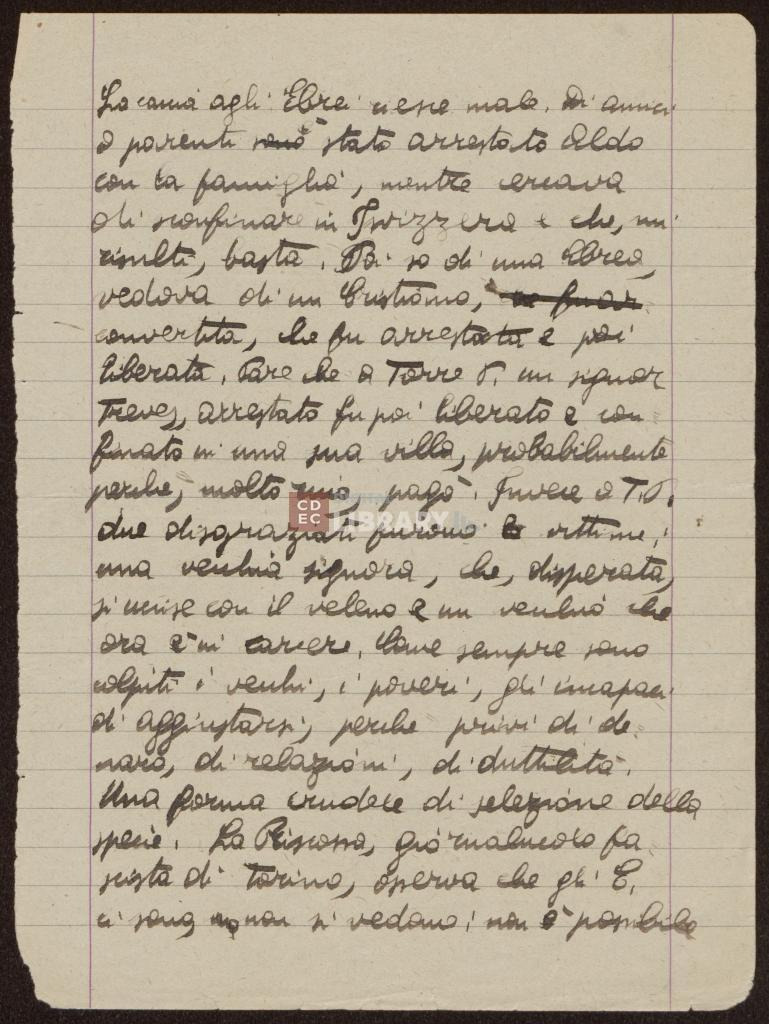 La caccia agli Ebrei riesce male. Di amici
o parenti sono stato arrestato Aldo
con la famiglia, mentre cercava
di sconfinare in Isvizzera e che, mi
risulti, basta. Poi so di una Ebrea,
vedova di un Cristiano,
convertita, che fu arrestata e poi
liberata. Pare che a Torre P. un signor
Treves, arrestato fu poi liberato e con-
finato in una sua villa, probabilmente
perché, molto pagò. Invece a T.P.
due disgraziati furono le vittime;
una vecchia signora, che, disperata,
si uccise con il veleno e un vecchio che
ora è in carcere. Come sempre sono
colpiti i vecchi, i poveri, gli incapaci
di aggiustarsi, perché privi di de-
naro, di relazioni, di duttilità.
Una forma crudele di selezione della
specie. La Riscossa, giornalucolo fa-
scista di Torino, osserva che gli E.
ci sono, non si vedono; non è possibile
CDEC
DIGITAL
LIBRARY.it